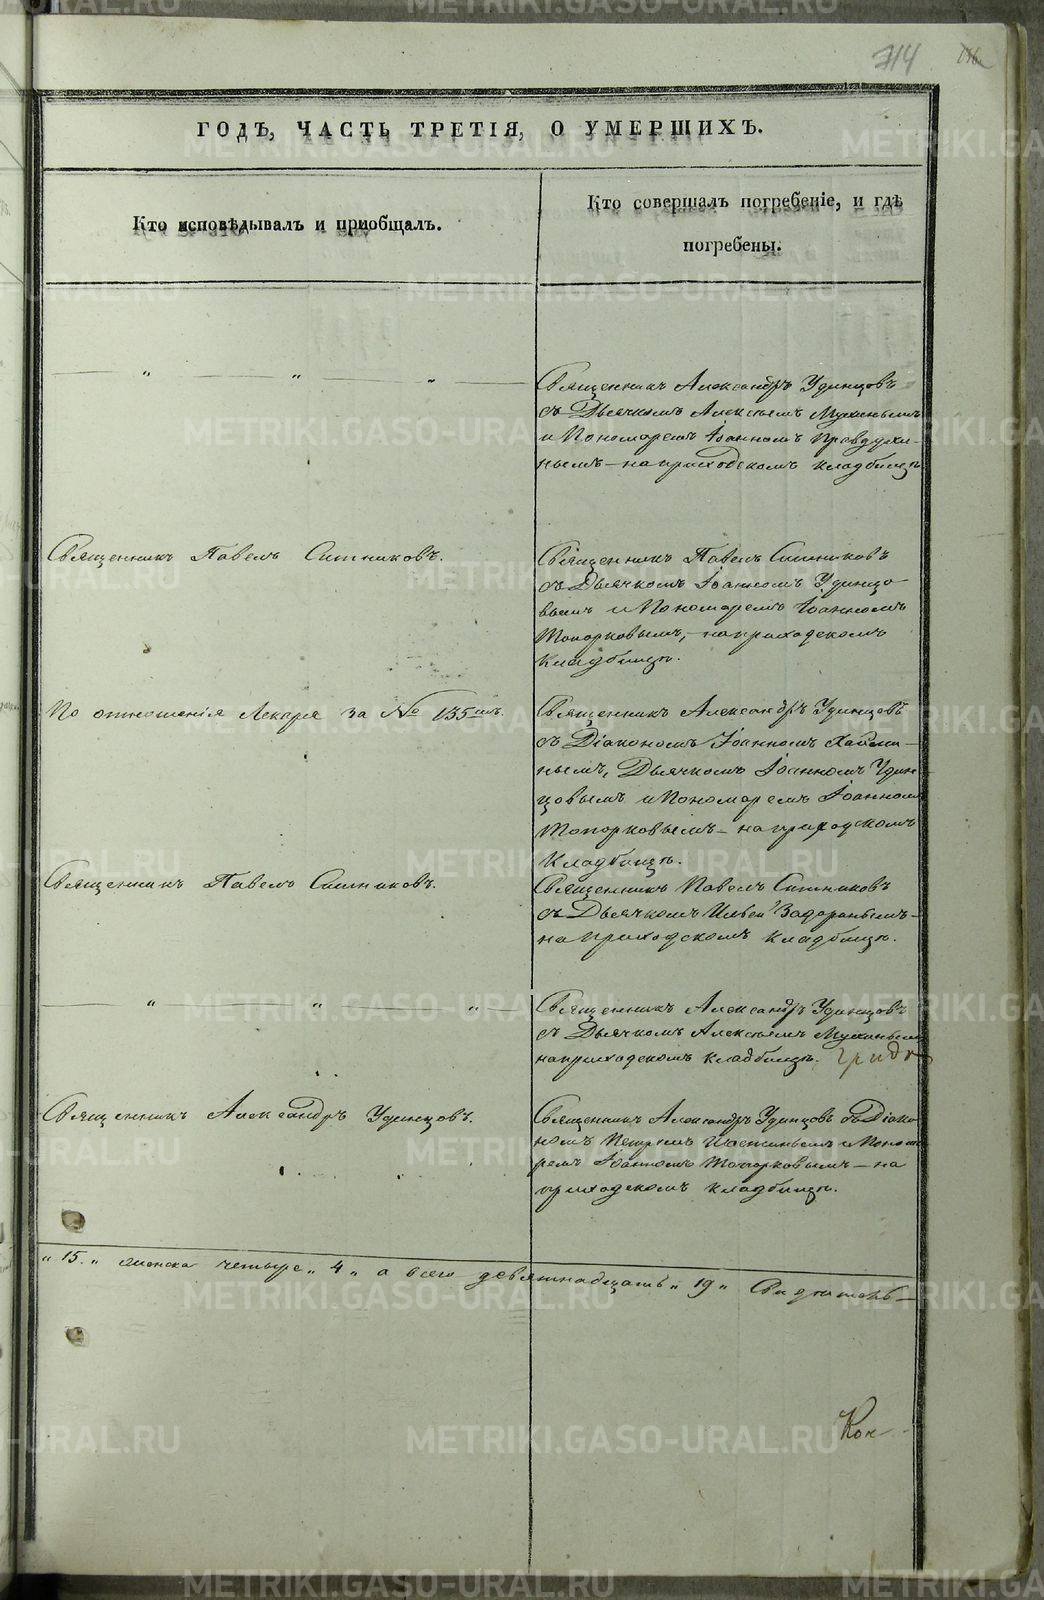 714
ГОДЪ, ЧАСТЬ ТРЕТІЯ, О УМЕРШИХЪ.
Кто исповѣдывалъ и пріобщалъ.
Кто совершалъ погребеніе, и гдѣ
погребены.
" " "
Священникъ Александръ Удинцовъ
съ Дьячкомъ Алексѣемъ Мухинымъ
и Пономаремъ Іоанномъ
нымъ - на приходскомъ кладбищѣ
Священникъ Павелъ Ситниковъ.
Священникъ Павелъ Ситниковъ
съ Дьячкомъ Іоанномъ Удинцо
вымъ и Пономаремъ Іоанномъ
Топорковымъ, - на приходскомъ
кладбищѣ.
По отношенія Лекаря за № 135мъ.
Священникъ Александръ Удинцовъ
съ Діакономъ Іоанномъ
нымъ, Дьячкомъ Іоанномъ Удин
цовымъ и Пономаремъ Іоанномъ
Топорковымъ - на приходскомъ
кладбищѣ.
Священникъ Павелъ Ситниковъ.
Священникъ Павелъ Ситниковъ
съ Дьячкомъ Ильей
на приходскомъ кладбищѣ.
" " "
Священникъ Александръ Удинцовъ
съ Дьячкомъ Алексѣемъ Мухинымъ
на приходскомъ кладбищѣ.
Священникъ Александръ Удинцовъ.
Священникъ Александръ Удинцовъ съ Діако
номъ Петромъ и Поно
ремъ Іоанномъ Топорковымъ - на
приходскомъ кладбищѣ.
" 15. " женска четыре " 4 " а всего девятнадцать " 19 "
METRIKI.GASO-URAL.RU